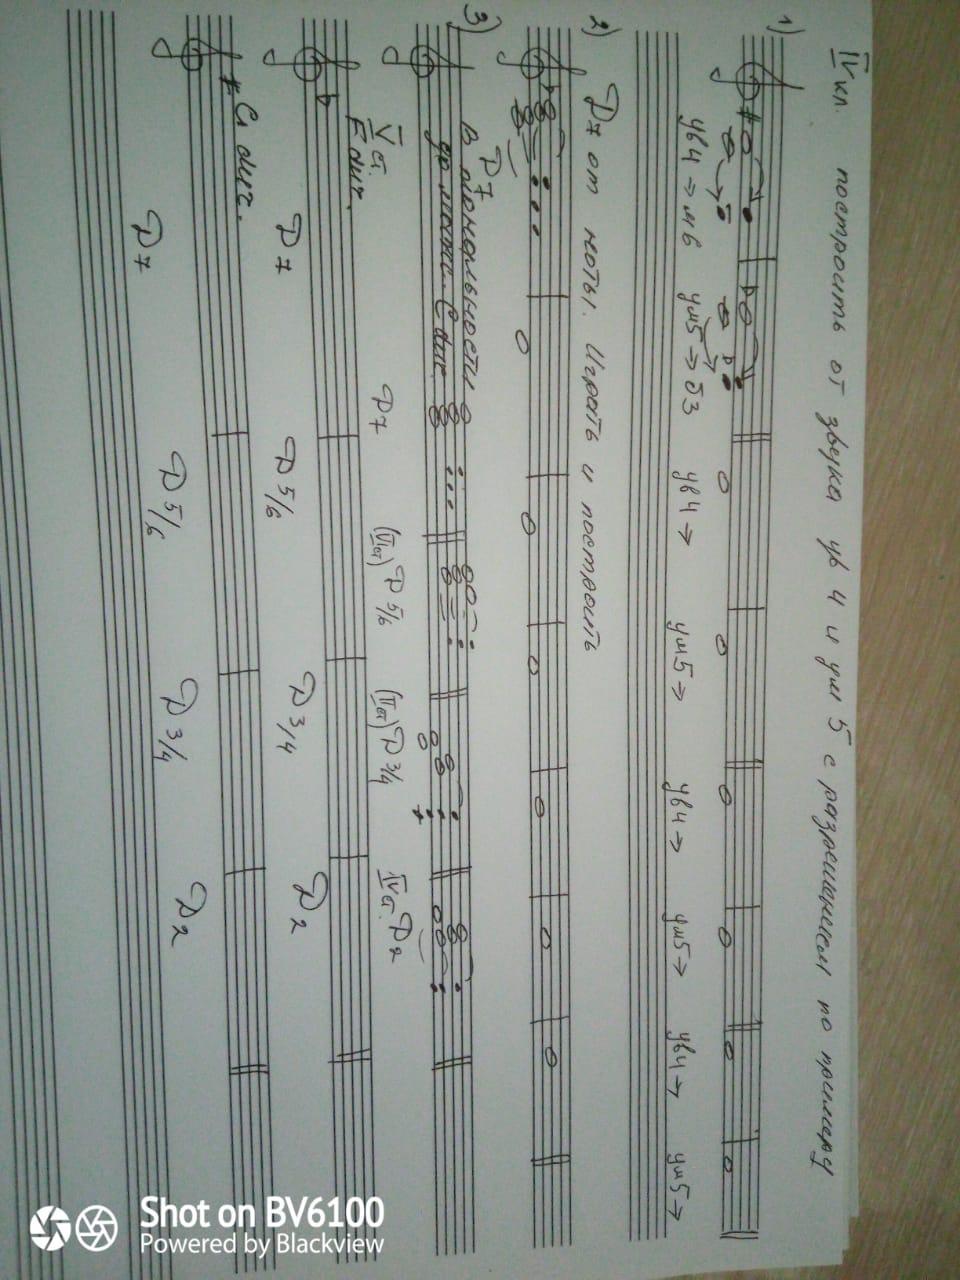 IV кл. построить от звука ув 4 и ум 5 с разрешением по примеру
1)
ув4 → м6 ум5 → б3 ув4 → ум5 → ув4 → ум5 → ув4 → ум5 →
2) D7 от ноты. Играть и построить
3) D7
в тональности
до мажор C dur.
V ст. D7 (VII ст) D 5/6 (II ст) D 3/4 IV ст. D2
F dur.
D7 D 5/6 D 3/4 D2
G dur.
D7 D 5/6 D 3/4 D2
Shot on BV6100
Powered by Blackview